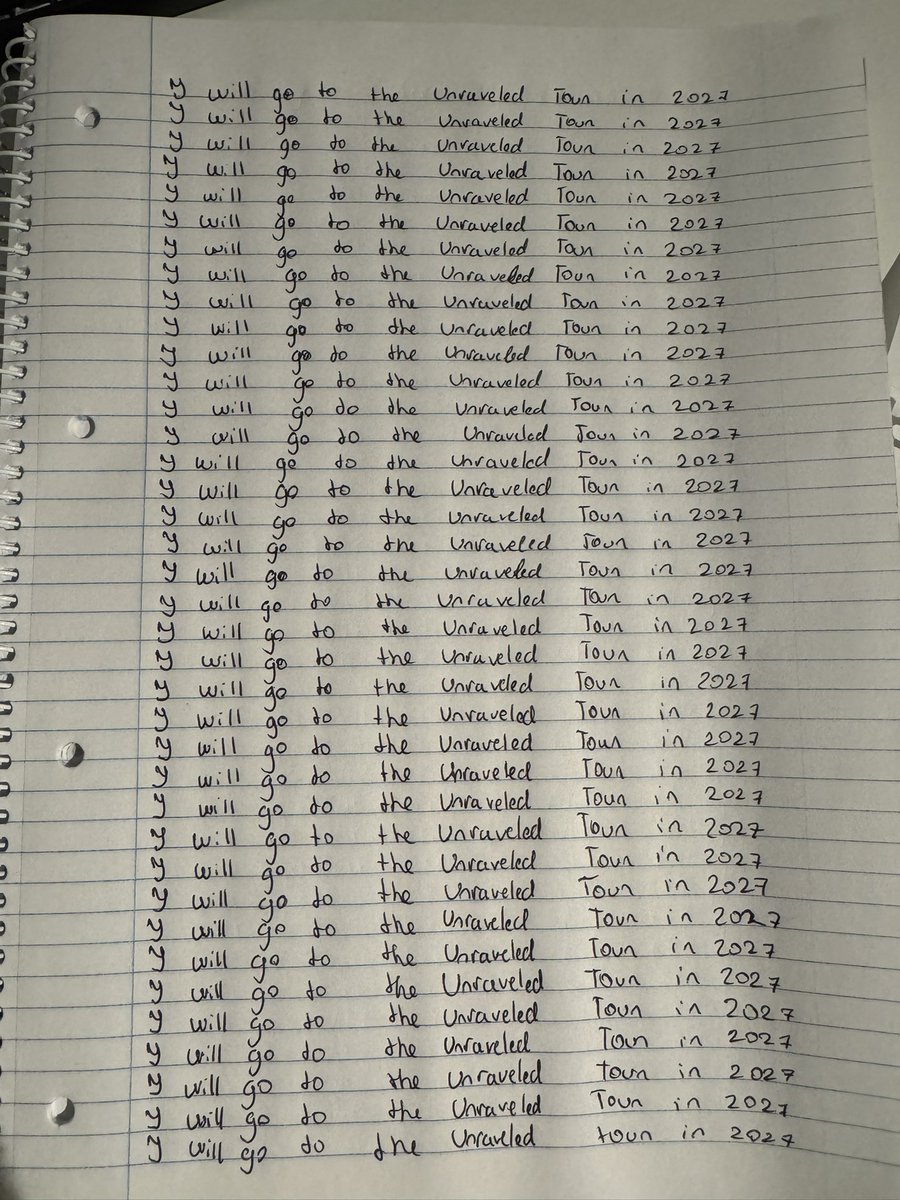 I will go to the Unraveled Tour in 2027
I will go to the Unraveled Tour in 2027
I will go to the Unraveled Tour in 2027
I will go to the Unraveled Tour in 2027
I will go to the Unraveled Tour in 2027
I will go to the Unraveled Tour in 2027
I will go to the Unraveled Tour in 2027
I will go to the Unraveled Tour in 2027
I will go to the Unraveled Tour in 2027
I will go to the Unraveled Tour in 2027
I will go to the Unraveled Tour in 2027
I will go to the Unraveled Tour in 2027
I will go to the Unraveled Tour in 2027
I will go to the Unraveled Tour in 2027
I will go to the Unraveled Tour in 2027
I will go to the Unraveled Tour in 2027
I will go to the Unraveled Tour in 2027
I will go to the Unraveled Tour in 2027
I will go to the Unraveled Tour in 2027
I will go to the Unraveled Tour in 2027
I will go to the Unraveled Tour in 2027
I will go to the Unraveled Tour in 2027
I will go to the Unraveled Tour in 2027
I will go to the Unraveled Tour in 2027
I will go to the Unraveled Tour in 2027
I will go to the Unraveled Tour in 2027
I will go to the Unraveled Tour in 2027
I will go to the Unraveled Tour in 2027
I will go to the Unraveled Tour in 2027
I will go to the Unraveled Tour in 2027
I will go to the Unraveled Tour in 2027
I will go to the Unraveled Tour in 2027
I will go to the Unraveled Tour in 2027
I will go to the Unraveled Tour in 2027
I will go to the Unraveled Tour in 2027
I will go to the Unraveled tour in 2027
I will go to the Unraveled Tour in 2027
I will go to the Unraveled tour in 2027